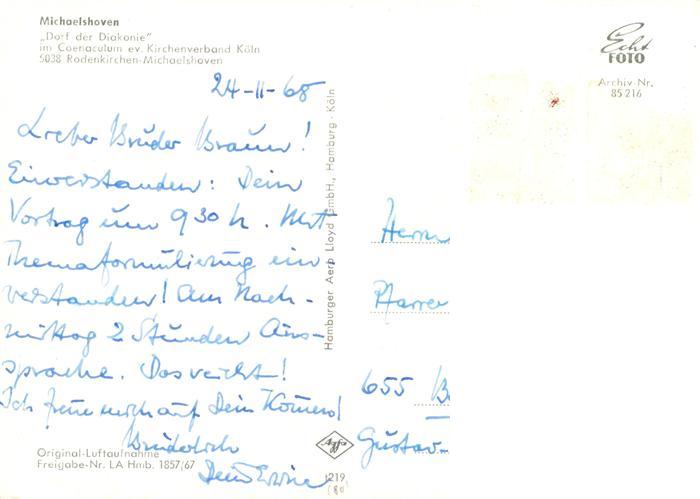 Michaelshoven
„Dorf der Diakonie"
im Coenaculum ev. Kirchenverband Köln
5038 Rodenkirchen-Michaelshoven
Echt
FOTO
Archiv-Nr.
85 216
24-11-68
Lieber Bruder Braun!
Einverstanden: Dein
Vortrag um 9 30 h. Mit
Themaformulierung ein
verstanden! Am Nach-
mittag 2 Stunden Aus-
sprache. Das reicht!
Ich freue mich auf Dein Kommen!
Brüderlich
Dein Erwin
Hamburger Aero Lloyd GmbH., Hamburg · Köln
Herrn
Pfarrer
655 B
Gustav-
Original-Luftaufnahme
Freigabe-Nr. LA Hmb. 1857/67
Agfa
1219
(80)